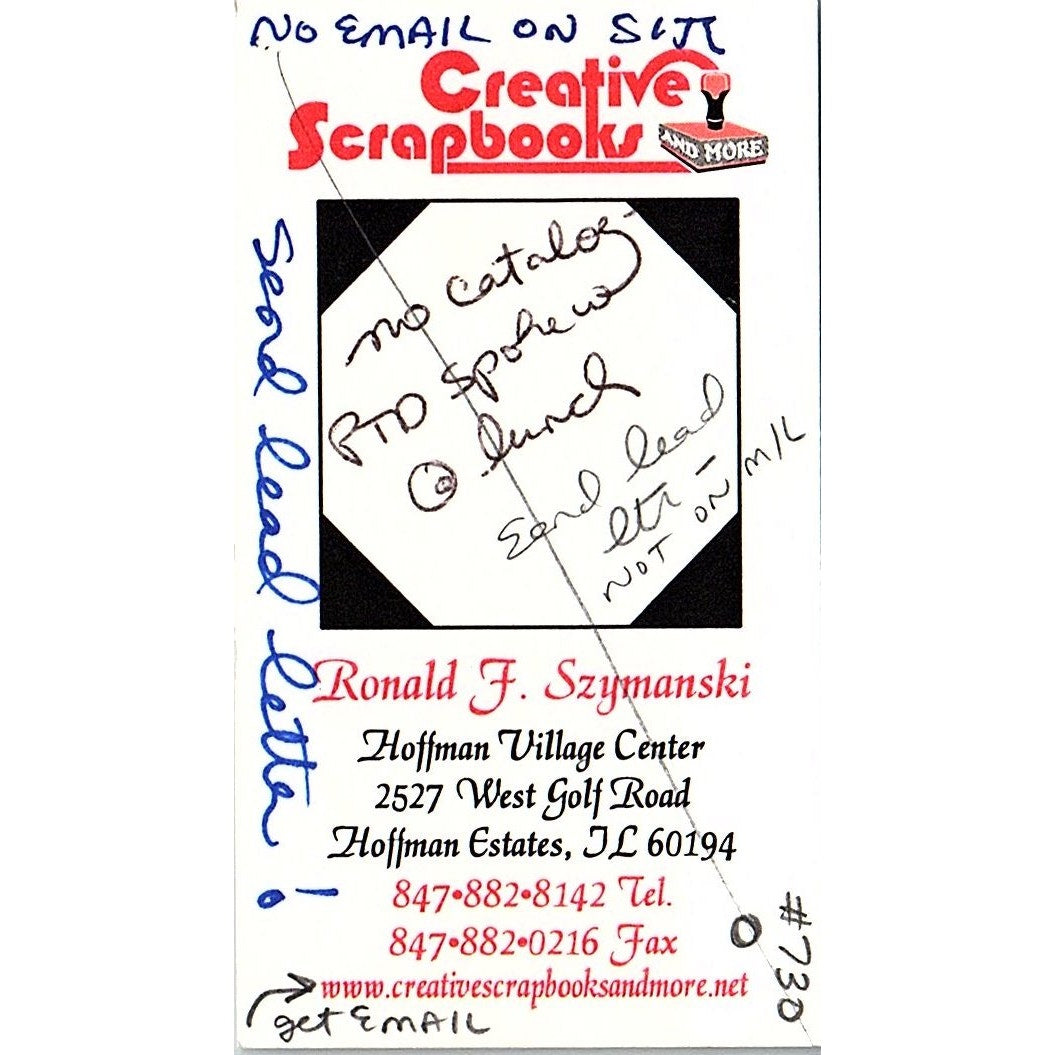 NO EMAIL ON SITE
Creative
Scrapbooks
AND MORE
no catalog-
PTD Spoke w
@ lunch
Send lead
ltr -
NOT ON M/L
Send lead letter!
Ronald F. Szymanski
Hoffman Village Center
2527 West Golf Road
Hoffman Estates, IL 60194
847•882•8142 Tel.
847•882•0216 Fax
www.creativescrapbooksandmore.net
get EMAIL
#730